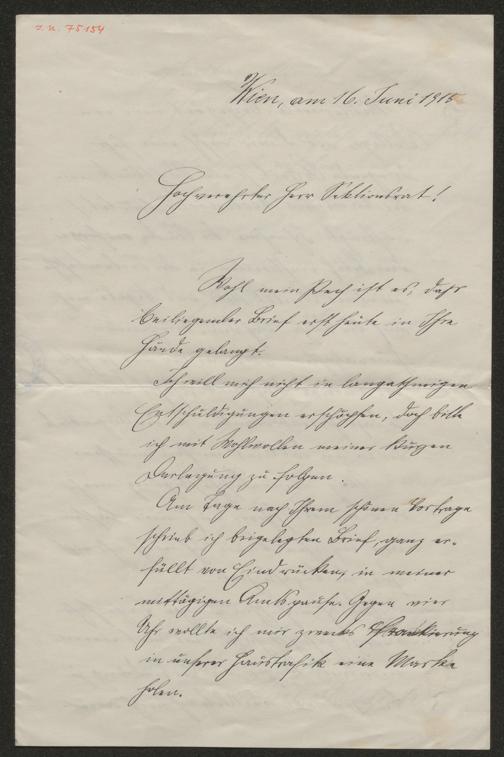 I.N. 75154
Wien, am 16. Juni 1915
Hochverehrter Herr Sektionsrat!
Wohl mein Pech ist es, dass
beiliegender Brief erst heute in Ihre
Hände gelangt.
Ich will mich nicht in langathmigen
Entschuldigungen erschöpfen, doch bitte
ich mit Wohlwollen meiner kurzen
Darlegung zu folgen.
Am Tage nach Ihrem schönen Vortrage
schrieb ich beigelegten Brief, ganz er-
füllt von Eindrücken, in meiner
mittägigen Amtspause. Gegen vier
Uhr wollte ich mir zwecks Frankierung
in unserer Haustrafik eine Marke
holen.